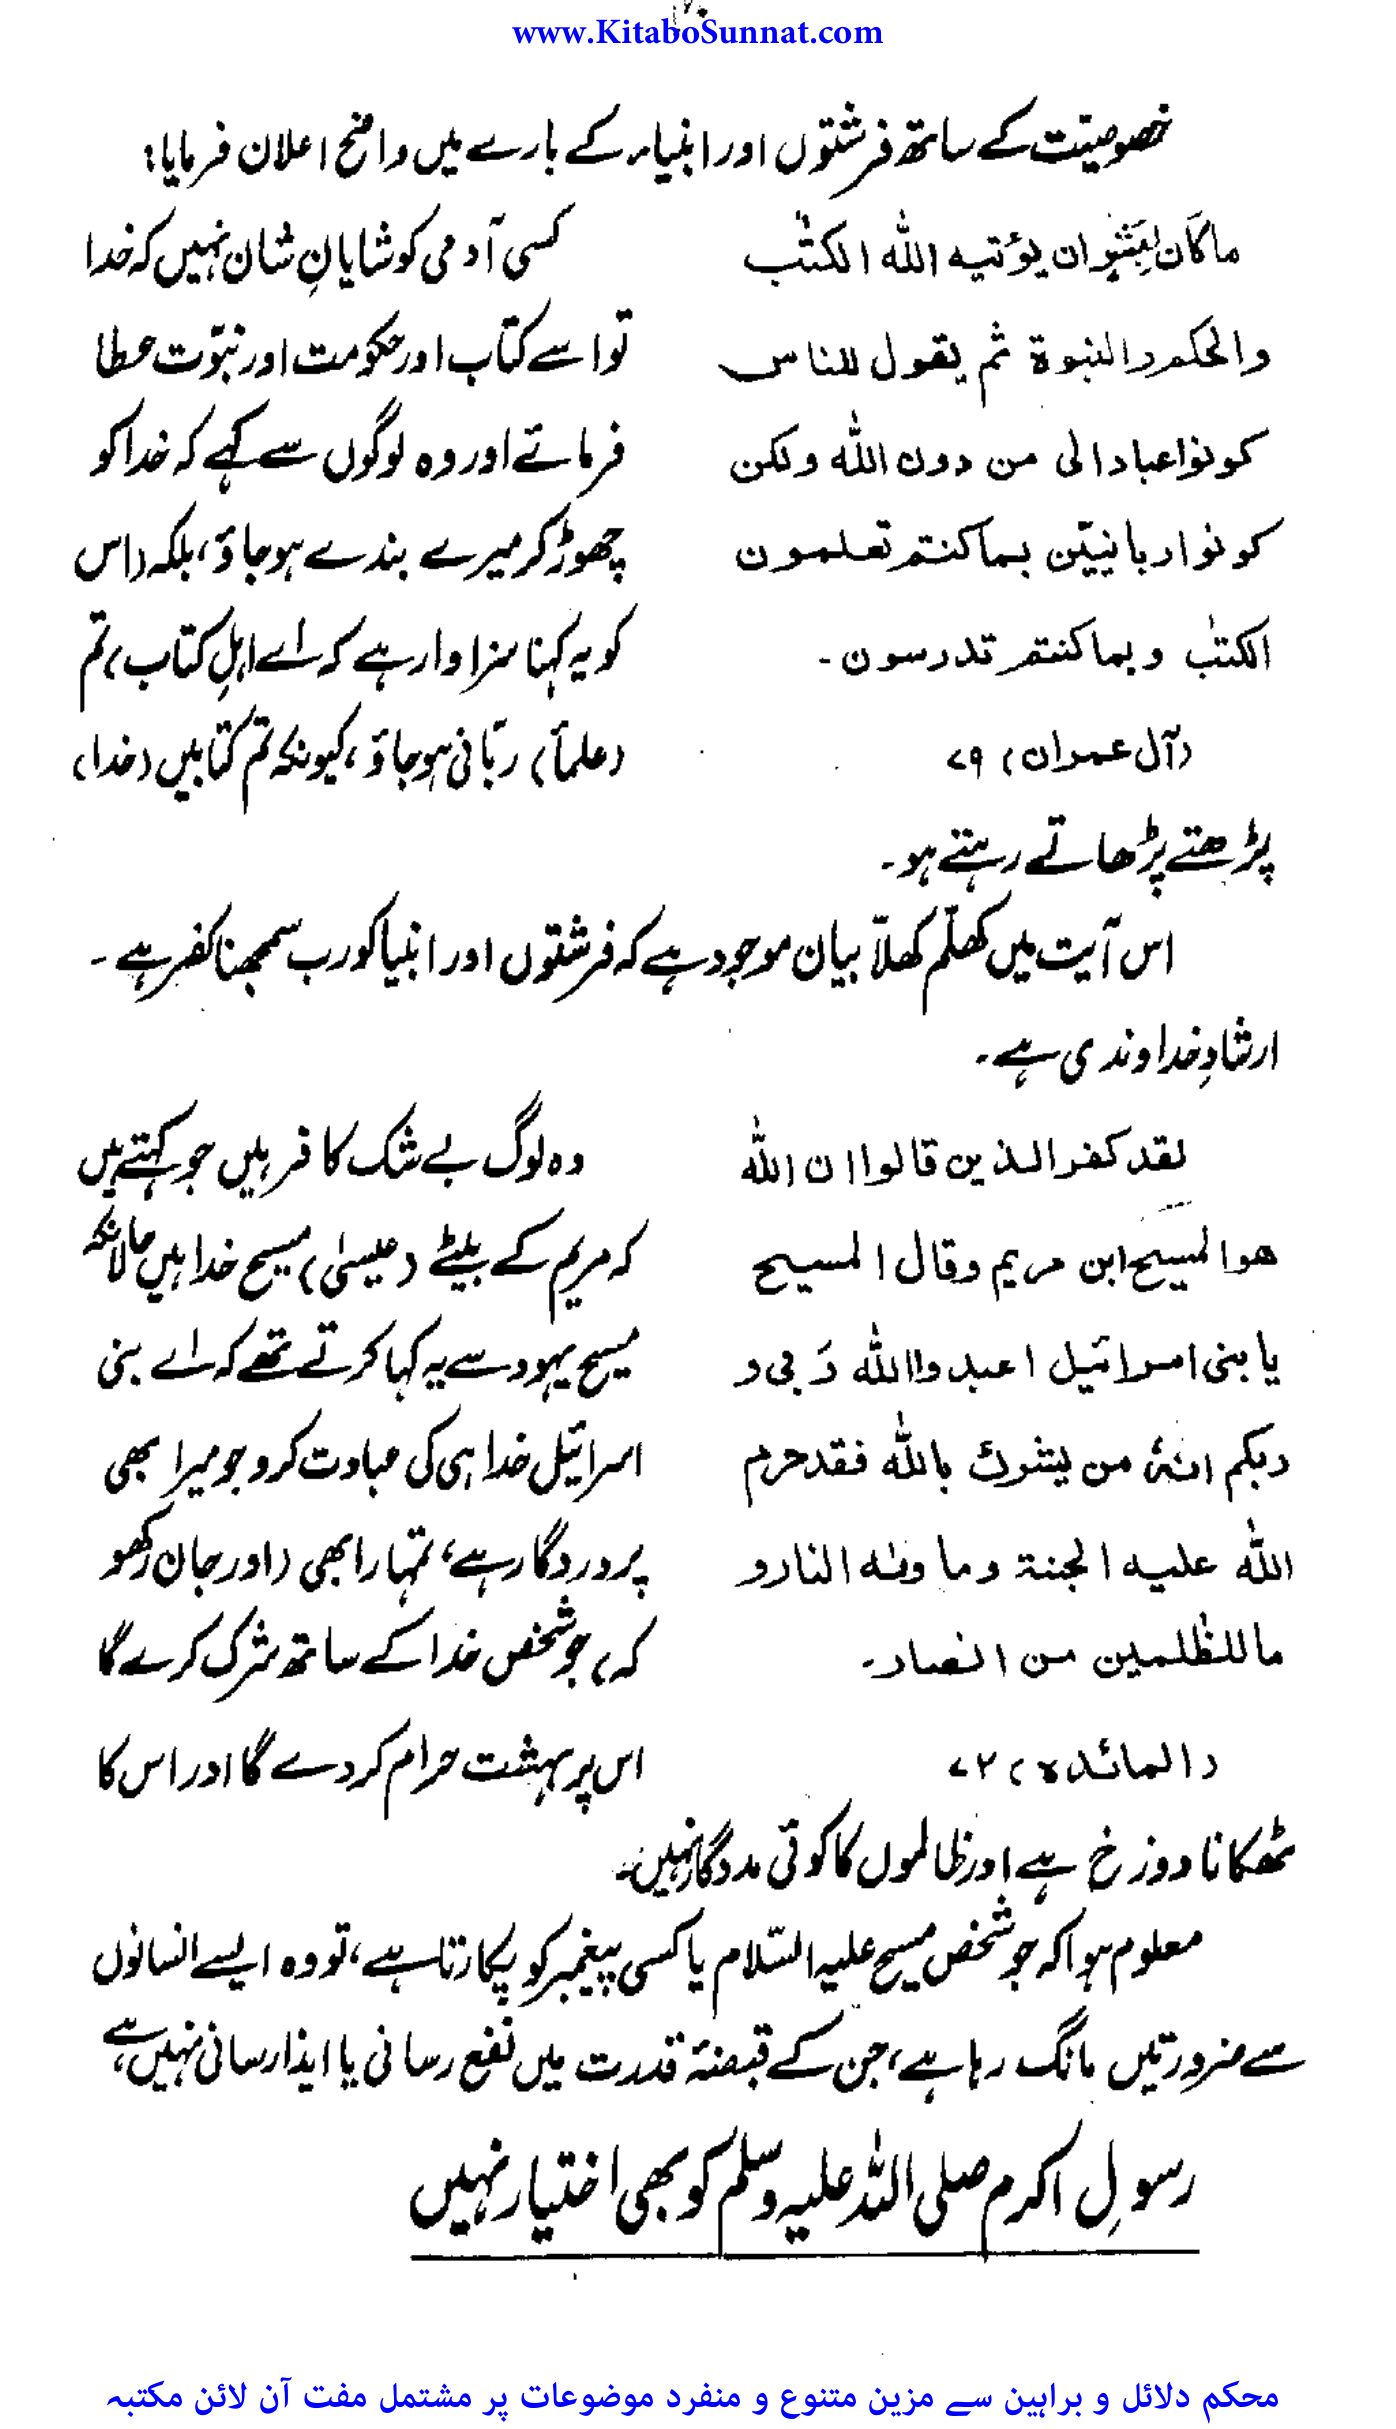 ۱۷۰
www.KitaboSunnat.com
خصوصیّت کے ساتھ فرشتوں اور انبیاء کے بارے میں واضح اعلان فرمایا:
ماکَان لِبَشَرٍ ان یؤتیه الله الکتٰب
والحکم والنبوة ثم یقول للناس
کونوا عبادا لی من دون الله ولکن
کونوا ربانیّن بما کنتم تعلمون
الکتٰب وبما کنتم تدرسون۔
(آل عمران) ۷۹
کسی آدمی کو شایانِ شان نہیں کہ خدا
تو اسے کتاب اور حکومت اور نبوّت عطا
فرمائے اور وہ لوگوں سے کہے کہ خدا کو
چھوڑ کر میرے بندے ہو جاؤ، بلکہ (اس
کو یہ کہنا سزاوار ہے کہ اے اہلِ کتاب) تم
(علمأ) ربّانی ہو جاؤ، کیونکہ تم کتابیں (خدا)
پڑھتے پڑھاتے رہتے ہو۔
اس آیت میں کھلّم کھلّا بیان موجود ہے کہ فرشتوں اور انبیا کو رب سمجھنا کفر ہے۔
ارشادِ خداوندی ہے۔
لقد کفر الذین قالوا ان الله
هو المسیح ابن مریم وقال المسیح
یا بنی اسرائیل اعبدوا الله رَبی و
ربکم انهٗ من یشرك بالله فقد حرم
الله علیه الجنة وماوٰىه النار و
ما للظٰلمین من انصار۔
(المائدہ) ۷۲
وہ لوگ بے شک کافر ہیں جو کہتے ہیں
کہ مریم کے بیٹے (عیسیٰ) مسیح خدا ہیں حالانکہ
مسیح یہود سے یہ کہا کرتے تھے کہ اے بنی
اسرائیل خدا ہی کی عبادت کرو جو میرا بھی
پروردگار ہے، تمہارا بھی (اور جان رکھو
کہ) جو شخص خدا کے ساتھ شرک کرے گا
اس پر بہشت حرام کر دے گا اور اس کا
ٹھکانا دوزخ ہے اور ظالموں کا کوئی مددگار نہیں۔
معلوم ہوا کہ جو شخص مسیح علیہ السّلام یا کسی پیغمبر کو پکارتا ہے، تو وہ ایسے انسانوں
سے ضرورتیں مانگ رہا ہے، جن کے قبضۂ قدرت میں نفع رسانی یا ایذا رسانی نہیں ہے،
رسولِ اکرم صلی اللہ علیہ وسلم کو بھی اختیار نہیں
محکم دلائل و براہین سے مزین متنوع و منفرد موضوعات پر مشتمل مفت آن لائن مکتبہ